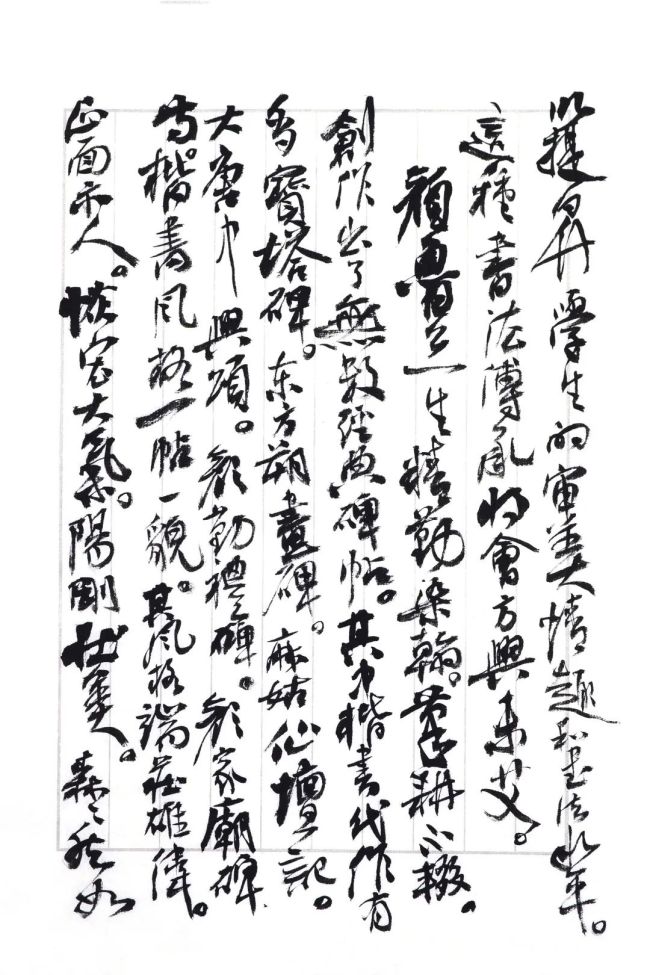 以提昇學生的审美情趣和书法水平。
這種書法傳承将會方興未艾。
顏魯公一生精勤染翰。筆耕不辍。
創作出了無數經典碑帖。其中楷書代作有
多寶塔碑。东方朔畫碑。麻姑仙壇記。
大唐中興頌。颜勤禮碑。颜家廟碑
等。楷書风格一帖一貌。其风格端莊雄偉。
正面示人。恢宏大氣。陽剛壮美。森々然如